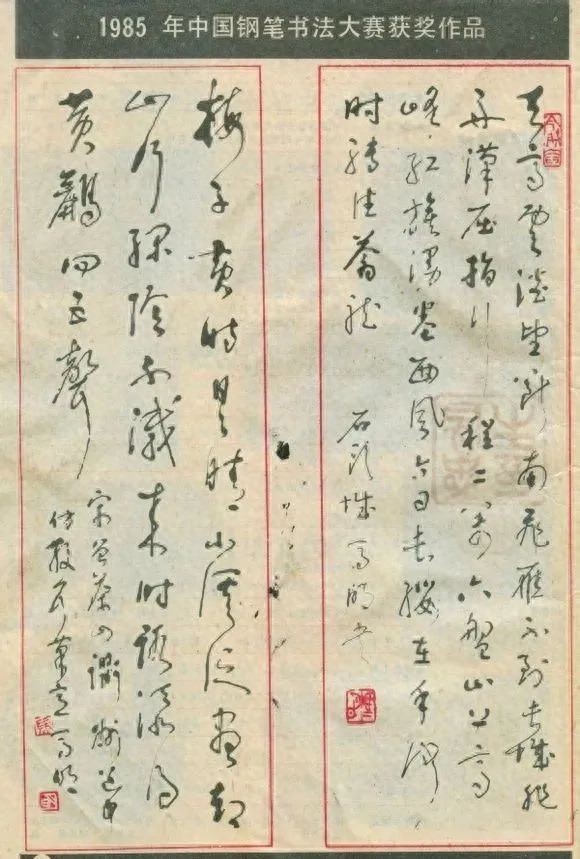 1985 年中国钢笔书法大赛获奖作品
天高雲淡望断南飛雁不到长城非
好漢屈指行程二万六盘山上高
峰红旗漫卷西风今日长缨在手何
时缚住蒼龙 石头城
梅子黄时日日晴小溪泛尽却
山行绿阴不减来时路添得
黄鹂四五聲
宋曾茶山衢州道中